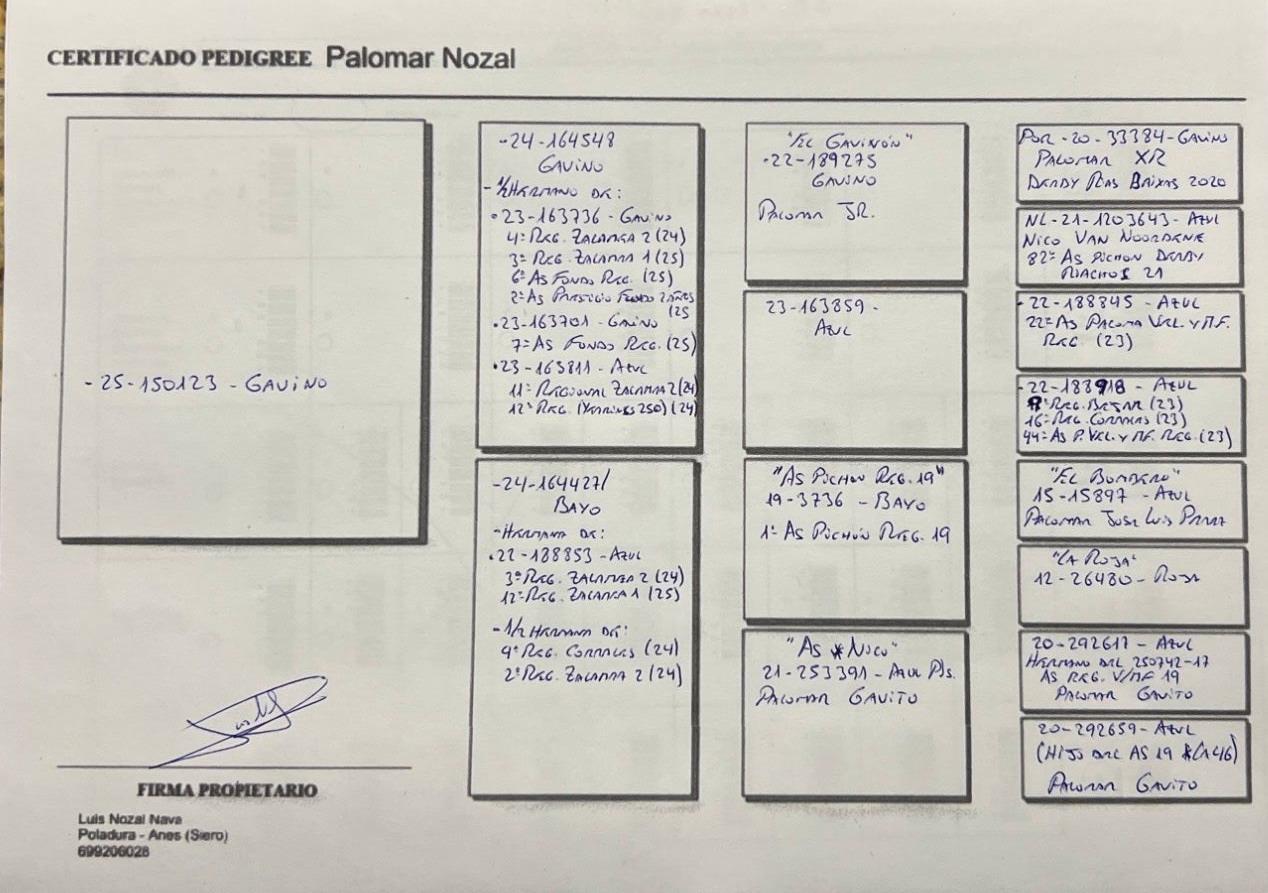 CERTIFICADO PEDIGREE Palomar Nozal
-25-150123 - GAVINO
FIRMA PROPIETARIO
Luis Nozal Nava
Poladura - Anes (Siero)
699206028
-24-164548
GAVINO
-1/2 HERMANO DE:
·23-163736 - GAVINO
4º REG. ZALAMEA 2 (24)
3º REG. ZALAMEA 1 (25)
6º AS FONDO REG. (25)
2º AS PRESTIGIO FONDO 2 AÑOS
(25
·23-163701 - GAVINO
7º AS FONDO REG. (25)
·23-163811 - AZUL
11º REGIONAL ZALAMEA 2 (24)
12º REG. (250) (24)
-24-164427/
BAYO
-HERMANA DE:
·22-188853 - AZUL
3º REG. ZALAMEA 2 (24)
12º REG. ZALAMEA 1 (25)
-1/2 HERMANA DE:
9º REG. CORRALES (24)
2º REG. ZALAMEA 2 (24)
"EL GAVINÓN"
-22-189275
GAVINO
PALOMAR JR.
23-163859 -
AZUL
"AS PICHON REG. 19"
19-3736 - BAYO
1º AS PICHÓN REG. 19
"AS NICO"
21-253391 - AZUL P/s.
PALOMAR GAVITO
POR-20-33384-GAVINO
PALOMAR XR
DERBY RIAS BAIXAS 2020
NL-21-1203643 - AZUL
NICO VAN NOORDENE
82º AS PICHON DERBY
RIACHOS 21
-22-188845 - AZUL
22º AS PALOMA VEL. Y MF.
REG (23)
-22-188918 - AZUL
8º REG. BEJAR (23)
16º REG. CORRALES (23)
44º AS P. VEL. Y MF. REG. (23)
"EL BOMBERO"
15-15897 - AZUL
PALOMAR JOSE LUIS
"LA ROJA"
12-26480 - ROJA
20-292617 - AZUL
HERMANO DEL 250742-17
AS REG. V/MF 19
PALOMAR GAVITO
20-292659 - AZUL
(HIJO DEL AS 19 (146)
PALOMAR GAVITO